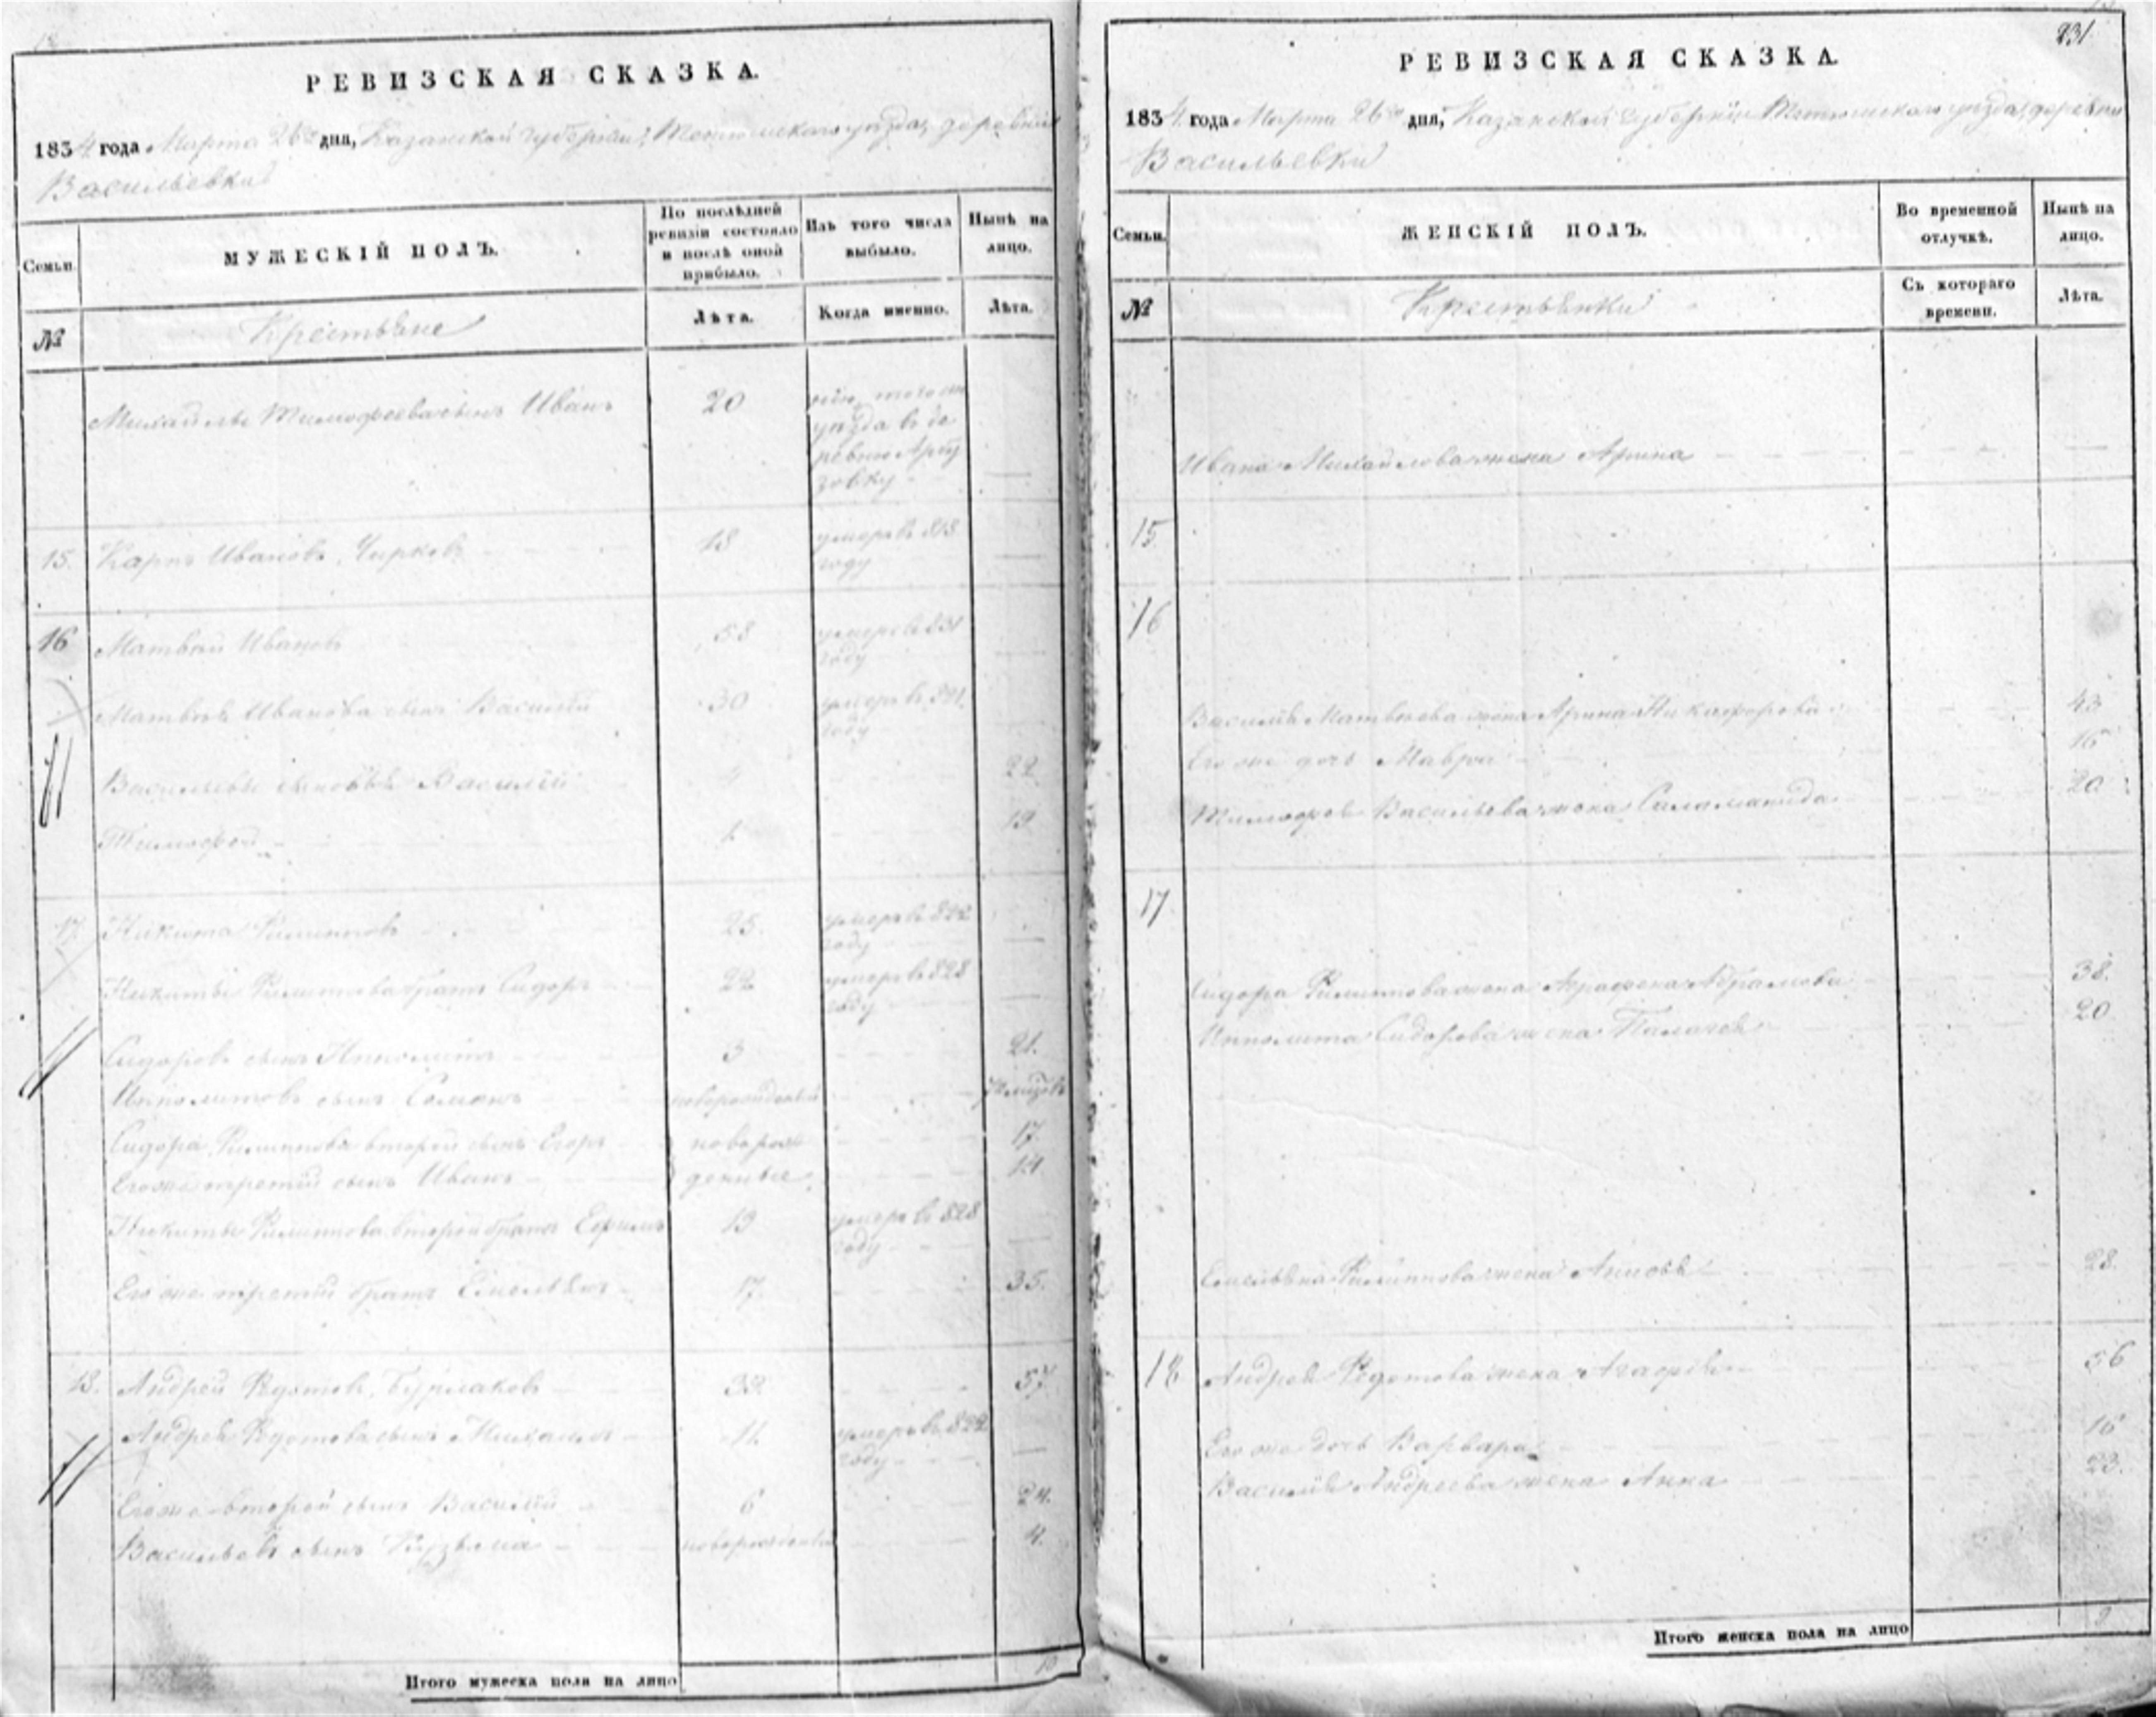 РЕВИЗСКАЯ СКАЗКА.
1834 года Марта 26го дня, Казанской губернии, Тетюшскаго уѣзда, деревни
Васильевки
Семьи.
МУЖЕСКІЙ ПОЛЪ.
По послѣдней
ревизіи состояло
и послѣ оной
прибыло.
Изъ того числа
выбыло.
Нынѣ на
лицо.
№
Крестьяне
Лѣта.
Когда именно.
Лѣта.
Михайлы Тимофеева сынъ Иванъ 20
того же
уѣзда въ де
ревню
15. Карпъ Ивановъ, Чирковъ 18 умеръ въ 818
году
16 Матвей Ивановъ 58 умеръ в 831
году
Матвѣя Иванова сынъ Василій 30 умеръ въ
году
Васильевы сыновья Василей 4 22
Тимофей 1 19
17 Никита Филиповъ 25 умеръ в 822
году
Никиты Филипова братъ Сидоръ 22 умеръ в 828
году
Сидоровъ сынъ Ипполитъ 3 21.
Ипполитовъ сынъ Семенъ новорожденный
Сидора Филипова второй сынъ Егоръ новорож 17.
Его же третій сынъ Иванъ денные 14
Никиты Филипова второй братъ Ефимъ 19 умеръ в 828
году
Его же третій братъ Емельянъ 17. 35.
18. Андрей Федотовъ, Бурлаковъ 39. 57.
Андрея Федотова сынъ Михаилъ 11. умеръ въ 822
году
Его же второй сынъ Василій 6 24.
Васильевъ сынъ Кузьма новорожденный 4.
Итого мужеска пола на лицо 10
231
РЕВИЗСКАЯ СКАЗКА.
1834 года Марта 26го дня, Казанской губерніи Тетюшскаго уѣзда, деревни
Васильевки
Семьи.
ЖЕНСКІЙ ПОЛЪ.
Во временной
отлучкѣ.
Нынѣ на
лицо.
№
Крестьянки
Съ котораго
времени.
Лѣта.
Ивана Михайлова жена Арина
15
16
Василія Матвѣева жена Арина Никафорова 43
Его же дочь Мавра 16
Тимофея Васильева жена Саламанида 20
17
Сидора Филипова жена Аграфена Абрамова 38.
Ипполита Сидорова жена Палагея 20
Емельяна Филиппова жена 28.
18 Андрея Федотова жена Агафья 56
Его же дочь Варвара 16
Василія Андреева жена Анна 23.
Итого женска пола на лицо 9